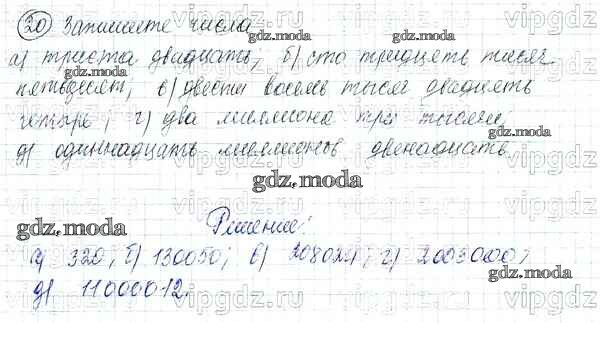 20 Запишите числа
а) триста двадцать; б) сто тридцать тысяч
пятьдесят; в) двести восемь тысяч двадцать
четыре; г) два миллиона три тысячи
д) одиннадцать миллионов двенадцать
gdz.moda
gdz.moda
Решение:
gdz.moda
а) 320; б) 130050; в) 208024; г) 2003000;
gdz.moda
д) 11000012.
gdz.moda
vipgdz.ru